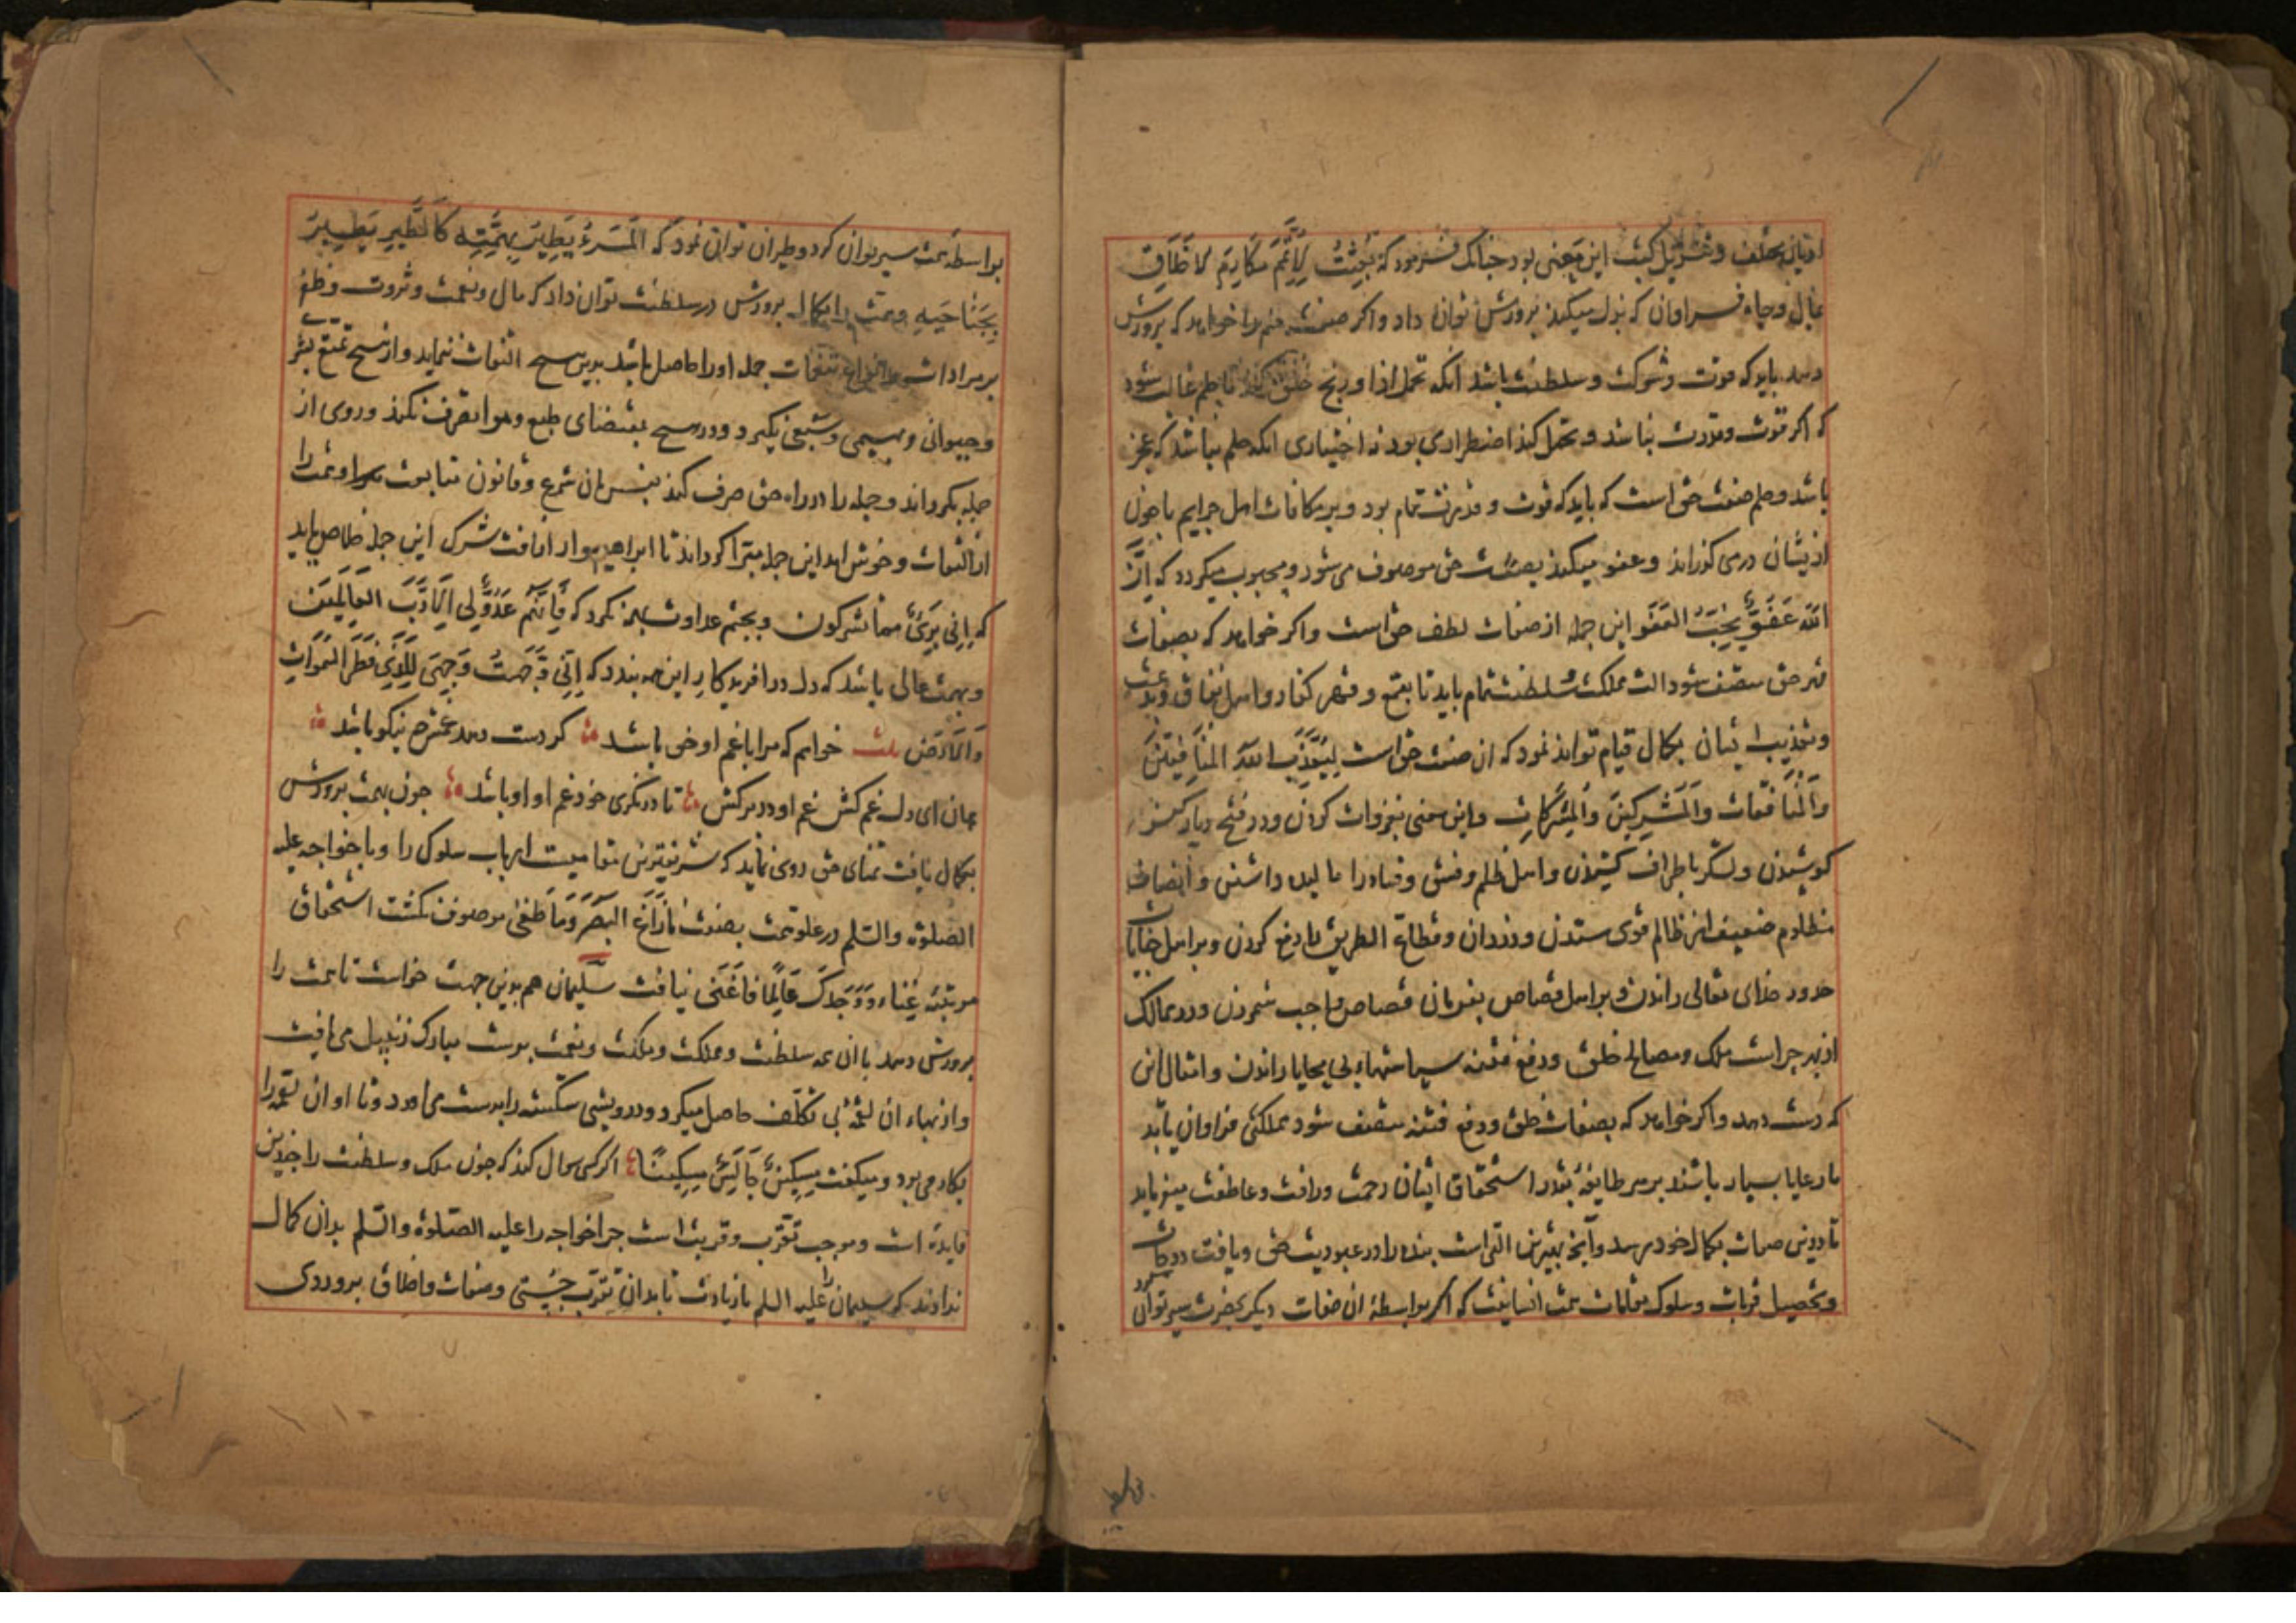 ادیان مختلف و تبدیل کیش این معنی بود چنانک فرمود که بُعِثْتُ لِاُتَمِّمَ مَکَارِمَ الاَخْلَاقِ
بمال وجاه فراوان که بذل میکند پرورش توان داد واکر صفت حلم را خواهد که پرورش
دهد باید که قوت و شوکت و سلطنت باشد انکه تحمل اذا و رنج خلق کند تا حلم غالب شود
که اکر قوت وقدرت نباشد و تحمل کند اضطراری بود نه اختیاری انکه حلم نباشد که عجز
باشد و حلم صفت حق است که باید که قوت و قدرتش تمام بود و بر مکافات اهل جرایم ماخوذ
ازیشان در می کذراند و عفو میکند بصفت حق موصوف می شود و محبوب میکردد که اِنَّ
اللهَ عَفُوٌّ یُحِبُّ العَفْوَ این جمله از صفات لطف حق است واکر خواهد که بصفات
قهر حق متصف شود الت مملکت و سلطنت تمام باید تا بقمع و قهر کفار و اهل نفاق و بدعت
و تعذیب ایشان بکمال قیام تواند نمود که ان صفت حق است لِیُعَذِّبَ اللهُ المُنَافِقِینَ
وَالْمُنَافِقَات وَالْمُشْرِکِینَ وَالْمُشْرِکَاتِ واین معنی بغزوات کردن ودر فتح دیار کفر
کوشیدن و لشکر باطراف کشیدن و اهل ظلم و فسق و فساد را مالیده داشتن و انصاف
مظلوم ضعیف از ظالم قوی ستدن و دزدان و قطاع الطریق را دفع کردن و بر اهل جنایات
حدود خدای تعالی راندن و بر اهل قصاص بفرمان قصاص واجب شمردن ودر ممالک
از بهر حراست ملک و مصالح خلق و دفع فتنه سیاستهاء بی محابا راندن و امثال این
که دست دهد واکر خواهد که بصفات خلق و دفع فتنه متصف شود مملکتی فراوان باید
تا رعایا بسیار باشند بر هر طایفه بقدر استحقاق ایشان رحمت ورافت وعاطفت میفرماید
تا درین صفات بکمال خود رسد وانچ بهترین التی است بنده را در عبودیت حق و یافت درجات
و تحصیل قربات و سلوک مقامات همت انسانیت که اکر بواسطهٔ ان صفات دیکر بحضرت سیر توان کرد
بواسطه
بواسطهٔ همت سیر توان کرد و طیران توانی نمود که اَلْمَرءُ یَطِیرُ بِهِمَّتِهِ کَالطَّیرِ یَطِیرُ
بِجَنَاحَیهِ و همت را بکمال پرورش در سلطنت توان داد که مال و نعمت و ثروت و ظفر
بر مرادات و انواع تنعمات جمله اورا حاصل باشد بدین هیچ التفات ننماید و از هیچ تمتع
و حیوانی و بهیمی و سبعی نکیرد و در هیچ بمقتضای طبع و هوا تصرف نکند و روی از
جمله بکرداند و جمله را در راه حق صرف کند بفرمان شرع و قانون متابعت و همت را
از التفات و خوش امد این جمله مبرا کرداند تا ابراهیم وار از افت شرک این جمله خلاص یابد
که اِنِّی بَرِیءٌ مما تشرکون و بچشم عداوت بهمه نکرد که فَاِنَّهُمْ عَدُوٌّ لِی اِلَّا رَبَّ العَالَمِینَ
و بهمت عالی باشد که دل در افریدکار این همه بندد که اِنِّی وَجَّهْتُ وَجْهِیَ لِلَّذِی فَطَرَ السَّمَوَاتِ
وَالْاَرْضَ بیت خواهم که مرا با غم او خی باشد کر دست دهد غمش چه نیکو باشد
هان ای دل غم کش غم او در بر کش تا در نکری خود غم او او باشد چون همت پرورش
بکمال یافت تمنای حق روی نماید که شریفترین مقامیست ارباب سلوک را و با خواجه علیه
الصلوة والسلم در علو همت بصفت مَا زَاغَ البَصَرُ وَمَا طَغَی موصوف نکشت استحقاق
مرتبهٔ غِناء وَ وَجَدَکَ عَائِلًا فَاَغْنَی نیافت سلیمان هم بدین جهت خواست تا همت را
پرورش دهد با ان همه سلطنت و مملکت و مکنت و نعمت بدست مبارک زنبیل می بافت
و از بهاء ان لقمهٔ بی تکلف حاصل میکرد و درویشی شکسته را بدست می اورد و با او ان لقمه را
بکار می برد و میکفت مِسْکِینٌ جَالَسَ مِسْکِینًا اکر کسی سوال کند که چون ملک و سلطنت را چندین
فایده است و موجب تقرب و قربت است چرا خواجه را علیه الصلوة والسلم بدان کمال
ندادند که سلیمان را علیه السلم تا زیادت تا بدان تقرب جستی و صفات و اخلاق بپروردی